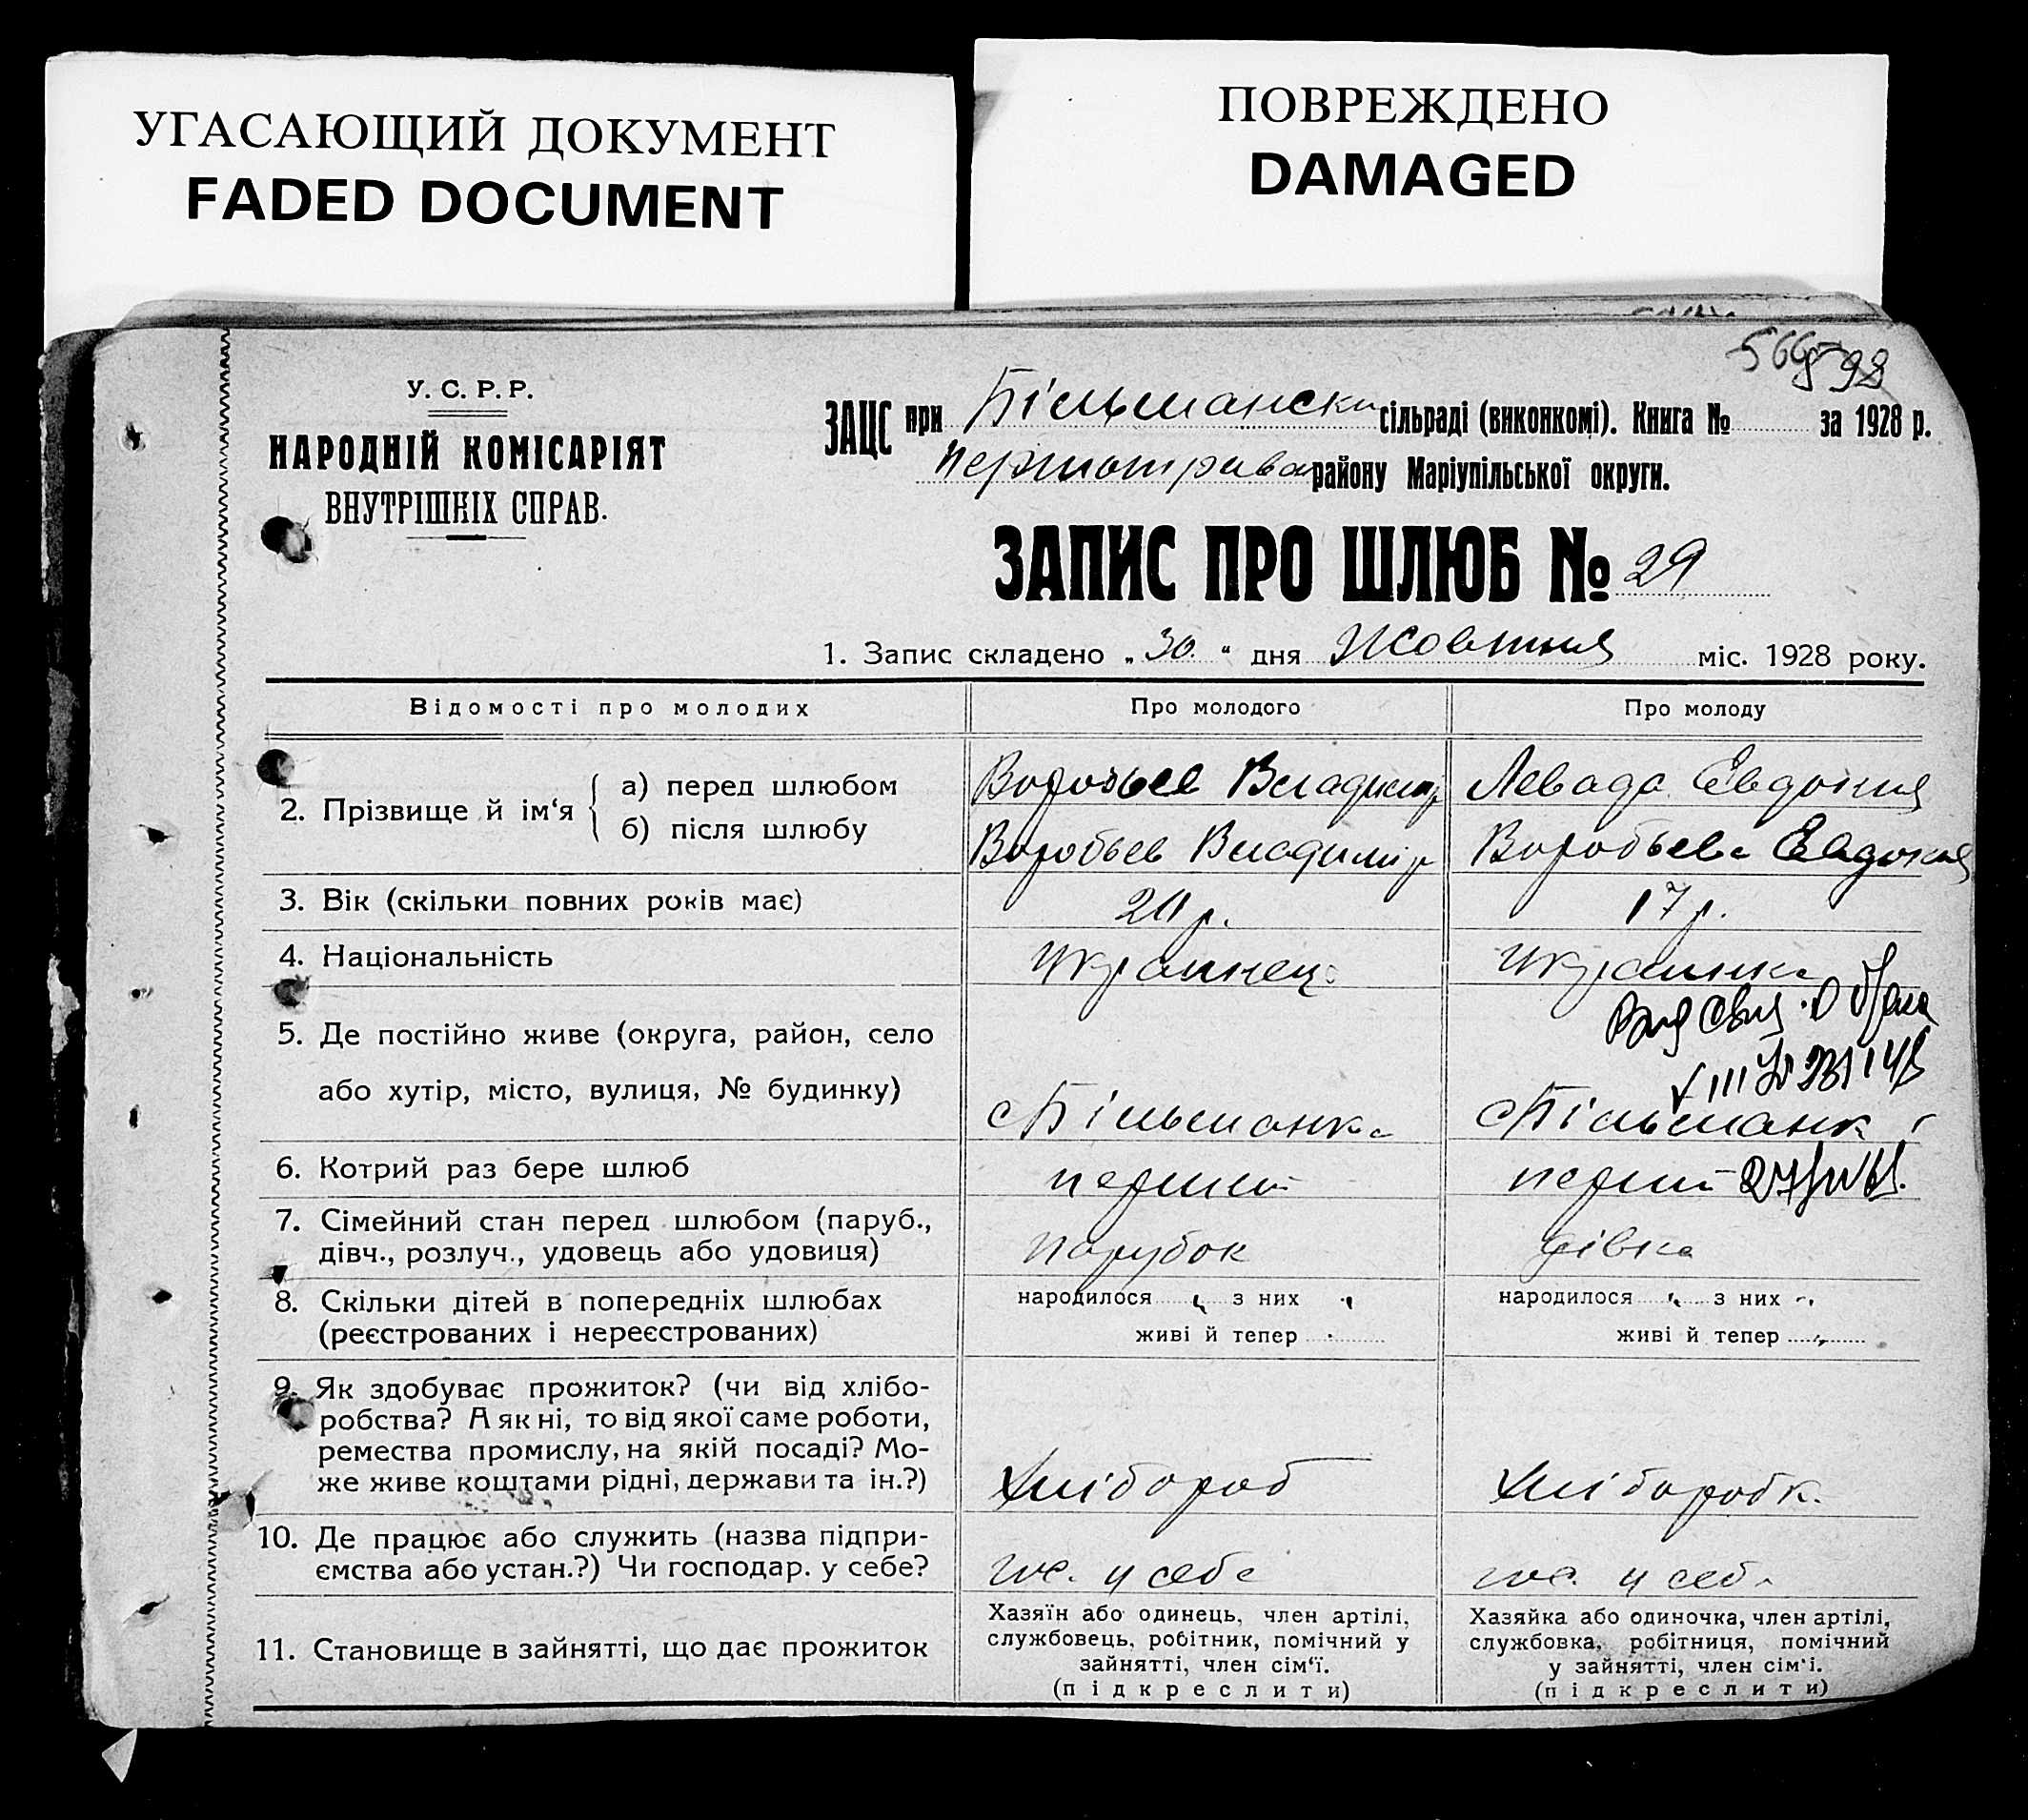 УГАСАЮЩИЙ ДОКУМЕНТ
FADED DOCUMENT
ПОВРЕЖДЕНО
DAMAGED
566 598
У. С. Р. Р.
НАРОДНІЙ КОМІСАРІЯТ
ВНУТРІШНІХ СПРАВ.
ЗАЦС при Більманськи сільраді (виконкомі). Книга № за 1928 р.
Першотравн району Маріупільської округи.
ЗАПИС ПРО ШЛЮБ № 29
1. Запис складено „30“ дня Жовтня міс. 1928 року.
Відомості про молодих Про молодого Про молоду
2. Прізвище й ім‘я
а) перед шлюбом Воробьев Владимир Левада Евдокия
б) після шлюбу Воробьев Владимір Воробьева Евдокия
3. Вік (скільки повних років має) 20 р. 17 р.
4. Національність Украинец Украинка
5. Де постійно живе (округа, район, село
або хутір, місто, вулиця, № будинку)
с Більманка с Більманк
6. Котрий раз бере шлюб перший перший
7. Сімейний стан перед шлюбом (паруб.,
дівч., розлуч., удовець або удовиця) парубок дівка
8. Скільки дітей в попередніх шлюбах
(реєстрованих і нереєстрованих)
народилося з них
живі й тепер
народилося з них
живі й тепер
9. Як здобуває прожиток? (чи від хлібо-
робства? А як ні, то від якої саме роботи,
ремества промислу, на якій посаді? Мо-
же живе коштами рідні, держави та ін.?)
Хлібороб Хліборобк
10. Де працює або служить (назва підпри-
ємства або устан.?) Чи господар. у себе?
гос. у себе гос. у себе
11. Становище в зайнятті, що дає прожиток
Хазяїн або одинець, член артілі,
службовець, робітник, помічний у
зайнятті, член сім‘ї.
(підкреслити)
Хазяйка або одиночка, член артілі,
службовка, робітниця, помічний
у зайнятті, член сім‘ї.
(підкреслити)